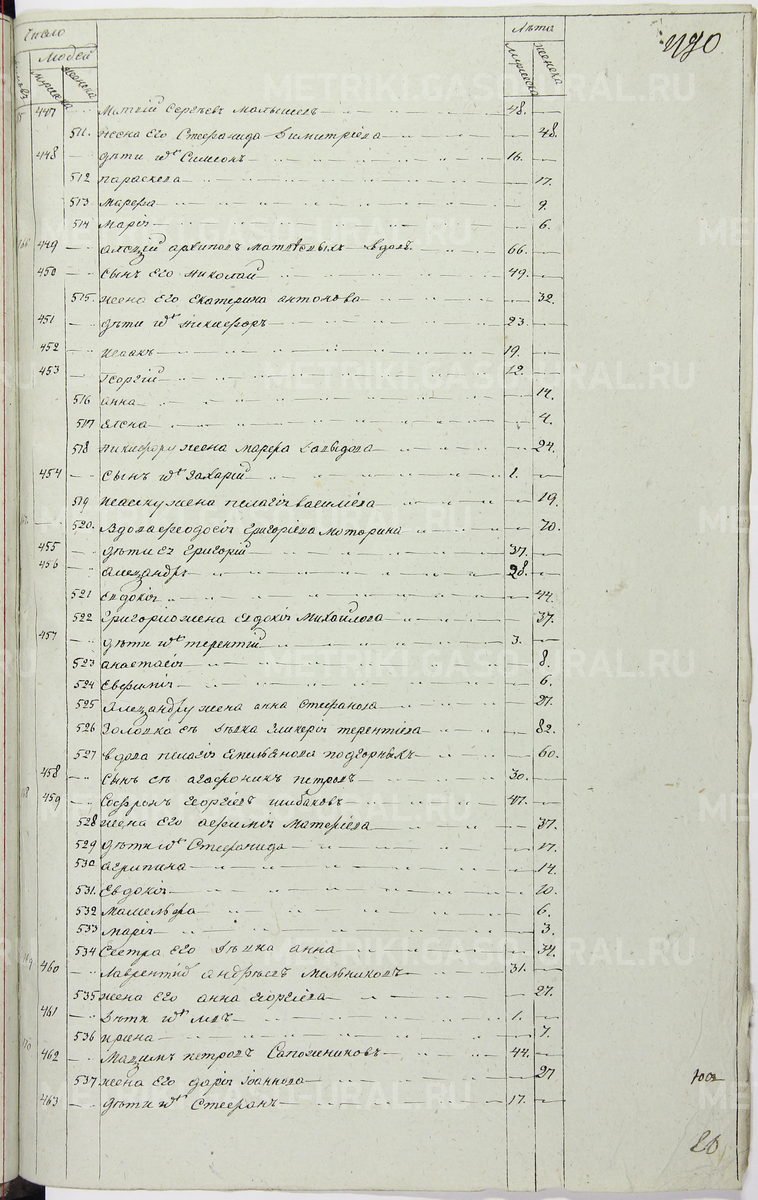 Число
Людей
мужеска
женска
Лѣта
мужеска
женска
447 Сергѣевъ 48.
511. жена его Стефанида Димитріева 48.
448 дѣти ихъ Симеонъ 16.
512 параскева 17.
513 Марѳа 9.
514 Маріѧ 6.
449 архиповъ вдовъ. 66.
450 Сынъ его николай 49.
515. жена его екатерина антонова 32.
451 дѣти ихъ никифоръ 23.
452 исаакъ 19.
453 георгій 12.
516 анна 14.
517 елена 4.
518 никифору жена марѳа давыдова 24.
454 Сынъ ихъ Захарій 1.
519 исааку жена пелагіѧ василіева 19.
520. Вдова феодосіѧ григоріева Моторина 70.
455 дѣти еѧ григорій 37.
456 александръ 28.
521 евдокіѧ 44.
522 григорію жена евдокіѧ михайлова 37.
457 дѣти ихъ терентій 3.
523 анастасіѧ 8.
524 Евфиміѧ 6.
525 Александру жена анна Стефанова 21.
526 Золовка еѧ дѣвка гликеріѧ терентіева 82.
527 вдова пелагіѧ емельѧнова подгорныхъ 60.
458 Сынъ еѧ агафоникъ петровъ 30.
459 Софронъ георгіевъ 47.
528 жена его афиміѧ 37.
529 дѣти ихъ Стефанида 17.
530 агрипина 14.
531. Евдокіѧ 10.
532 Мамельфа 6.
533 маріѧ 3.
534 Сестра его дѣвка анна 34.
460 Лаврентій андрѣевъ мельниковъ 31.
535 жена его анна георгіева 27.
461 дѣти ихъ 1.
536 ирина 7.
462 Маѯимъ петровъ Сапожниковъ 44.
537 жена его даріѧ іоаннова 27
463 дѣти ихъ Стефанъ 17.
METRIKI.GASO-URAL.RU